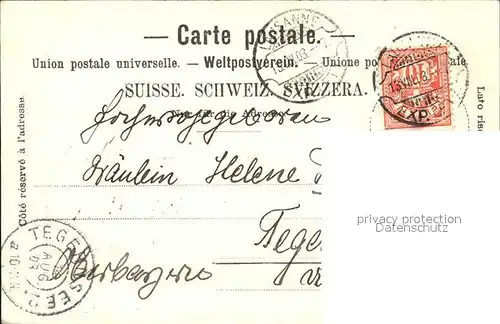 Carte postale.
Union postale universelle. — Weltpostverein. — Unione postale
SUISSE. SCHWEIZ. SVIZZERA.
Côté réservé à l'adresse.
Hochwohlgeboren
Fräulein Helene
Tege
Oberbayern
TEGERNSEE
AUG
LAUSANNE
EXP.
privacy protection
watermark